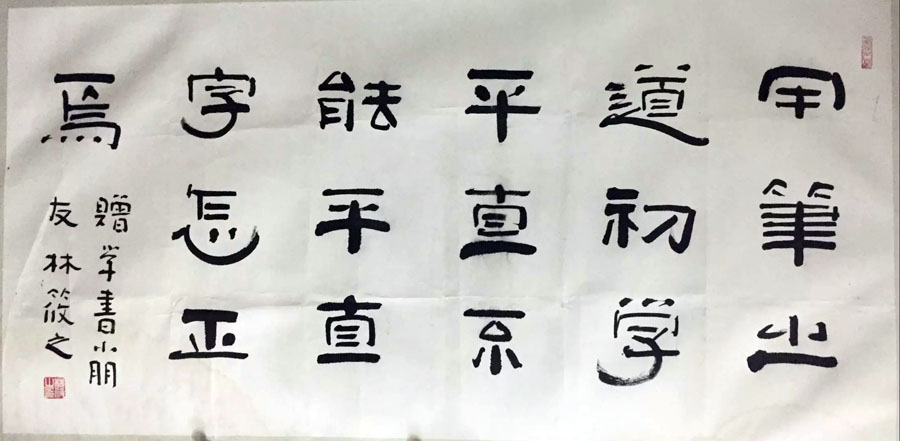 用筆之
道初学
平直不
能平直
字怎正
焉
贈学書小朋
友林筱之